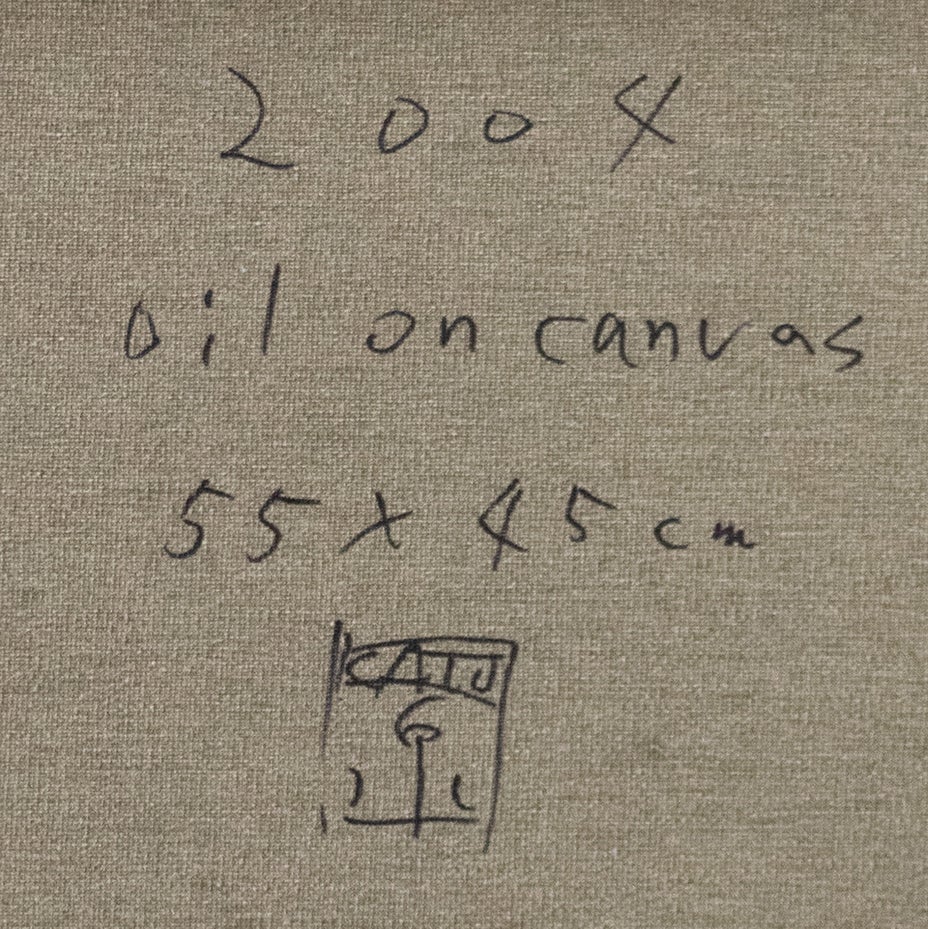 2004
oil on canvas
55 x 45 cm